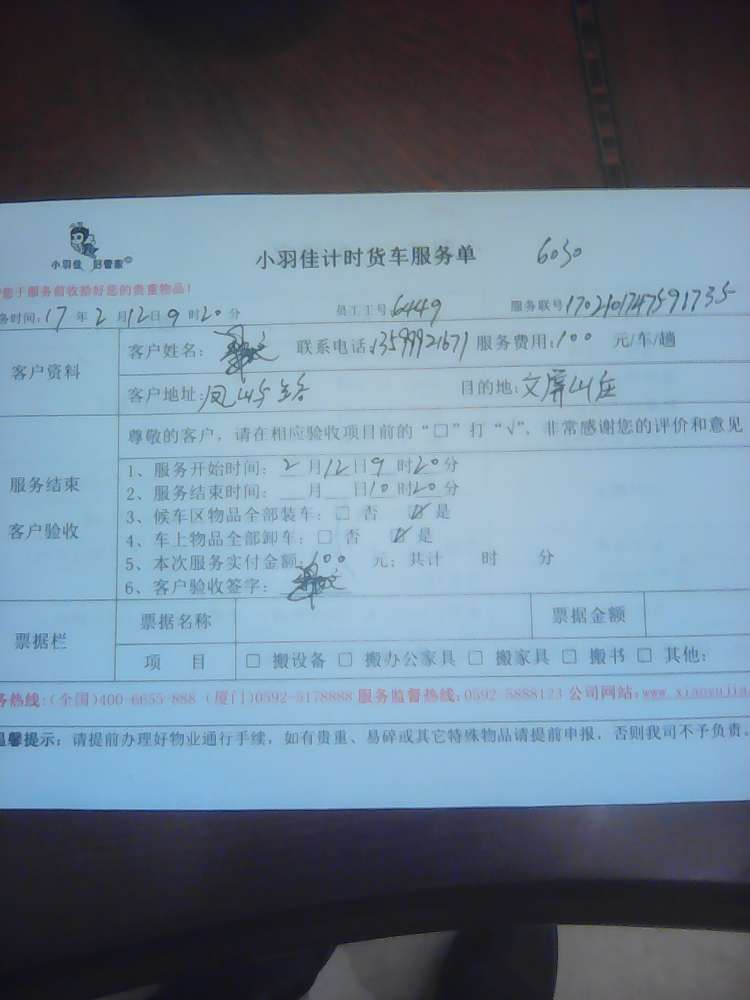 小羽佳 好管家
小羽佳计时货车服务单 6030
您于服务前收拾好您的贵重物品！
务时间：17年2月12日9时20分 员工工号：6449 服务联号：1702101747591735
客户资料
客户姓名： 联系电话：13599921671 服务费用：100 元/车/趟
客户地址：凤山 目的地：文屏山庄
尊敬的客户，请在相应验收项目前的“□”打“√”，非常感谢您的评价和意见
服务结束
客户验收
1、服务开始时间：2月12日9时20分
2、服务结束时间：__月__日10时20分
3、候车区物品全部装车：□ 否 ☑ 是
4、车上物品全部卸车：□ 否 ☑ 是
5、本次服务实付金额：100 元；共计 时 分
6、客户验收签字：
票据栏
票据名称 票据金额
项 目 □ 搬设备 □ 搬办公家具 □ 搬家具 □ 搬书 □ 其他：
务热线：(全国)400-6655-888 (厦门)0592-5178888 服务监督热线：0592-5888123 公司网站：www.xiaoyujia
温馨提示：请提前办理好物业通行手续，如有贵重、易碎或其它特殊物品请提前申报，否则我司不予负责。